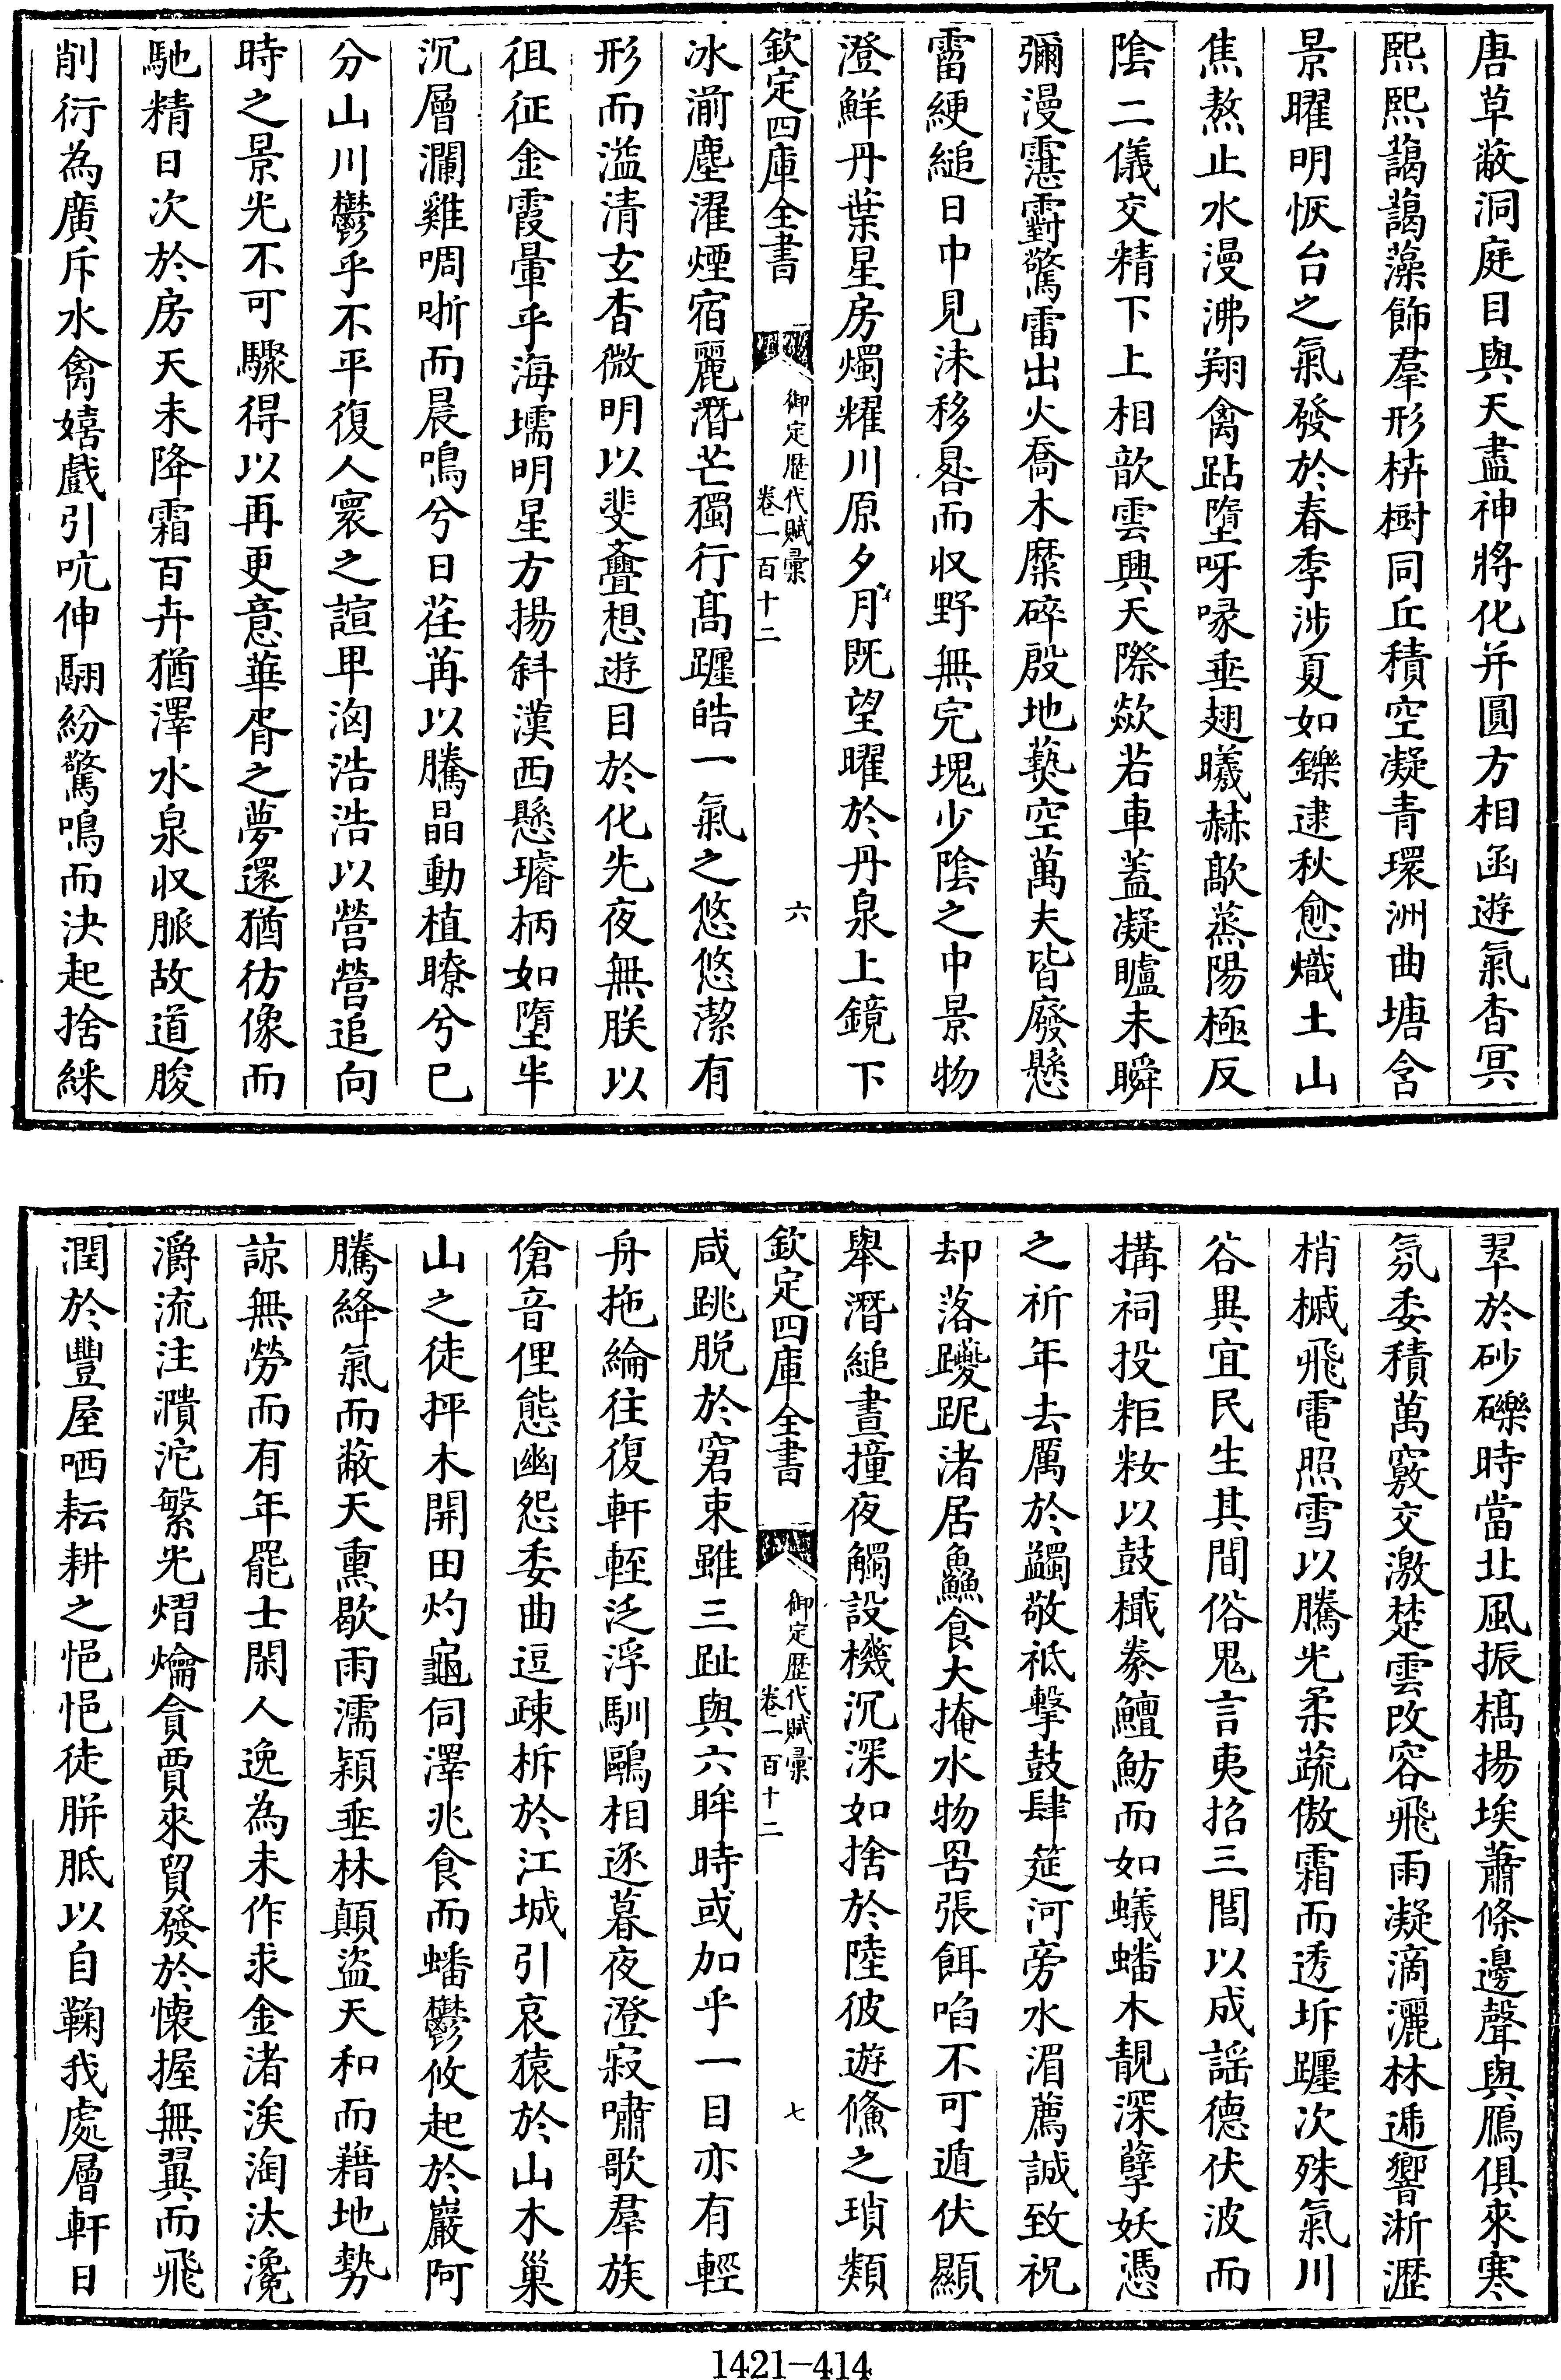 唐草蔽洞庭目與天盡神將化并圓方相函遊氣杳冥
熙熙藹藹藻飾羣形栟樹同丘積空凝青環洲曲塘含
景曜明恢台之氣發於春季涉夏如鑠逮秋愈熾土山
焦熬止水漫沸翔禽跕墮呀喙垂翅曦赫歊蒸陽極反
陰二儀交精下上相歆雲興天際欻若車蓋凝矑未瞬
彌漫霮䨴驚雷出火喬木糜碎殷地爇空萬夫皆廢懸
霤綆縋日中見沬移晷而収野無完塊少陰之中景物
澄鮮丹葉星房燭耀川原夕月既望曜於丹泉上鏡下
欽定四庫全書
御定歴代賦彙
卷一百十二
六
冰湔塵濯煙宿麗潛芒獨行高躔皓一氣之悠悠潔有
形而溢清玄杳微明以斐亹想遊目於化先夜無朕以
徂征金霞暈乎海壖明星方揚斜漢西懸璿柄如墮半
沉層瀾雞啁哳而晨鳴兮日荏苒以騰晶動植瞭兮已
分山川鬱乎不平復人寰之諠卑洶浩浩以營營追向
時之景光不可驟得以再更意華胥之夢還猶彷像而
馳精日次於房天未降霜百卉猶澤水泉収脈故道朘
削衍為廣斥水禽嬉戲引吭伸翮紛驚鳴而決起捨綵
翠於砂礫時當北風振槁揚埃蕭條邊聲與鴈俱來寒
氛委積萬竅交激楚雲改容飛雨凝滴灑林遞響淅瀝
梢槭飛電照雪以騰光柔蔬傲霜而透坼躔次殊氣川
谷異宜民生其間俗鬼言夷招三閭以成謡德伏波而
搆祠投粔籹以鼓檝豢鱣魴而如蟻蟠木靚深孽妖憑
之祈年去厲於蠲敬祗擊鼓肆筵河旁水湄薦誠致祝
却落躨跜渚居鱻食大掩水物罟張餌啗不可遁伏顯
舉潛縋晝撞夜觸設機沉深如捨於陸彼遊鯈之瑣類
欽定四庫全書
御定歴代賦彙
卷一百十二
七
咸跳脱於窘束雖三趾與六眸時或加乎一目亦有輕
舟拖綸往復軒輊泛浮馴鷗相逐暮夜澄寂嘯歌羣族
傖音俚態幽怨委曲逗疎柝於江城引哀猿於山木巢
山之徒抨木開田灼龜伺澤兆食而蟠鬱攸起於巖阿
騰絳氣而蔽天熏歇雨濡穎垂林顛盜天和而藉地勢
諒無勞而有年罷士閑人逸為未作求金渚涘淘汰瀺
灂流注瀵沱繁光熠爚貪賈來貿發於懐握無翼而飛
潤於豐屋哂耘耕之悒悒徒胼胝以自鞠我處層軒日
1421-414